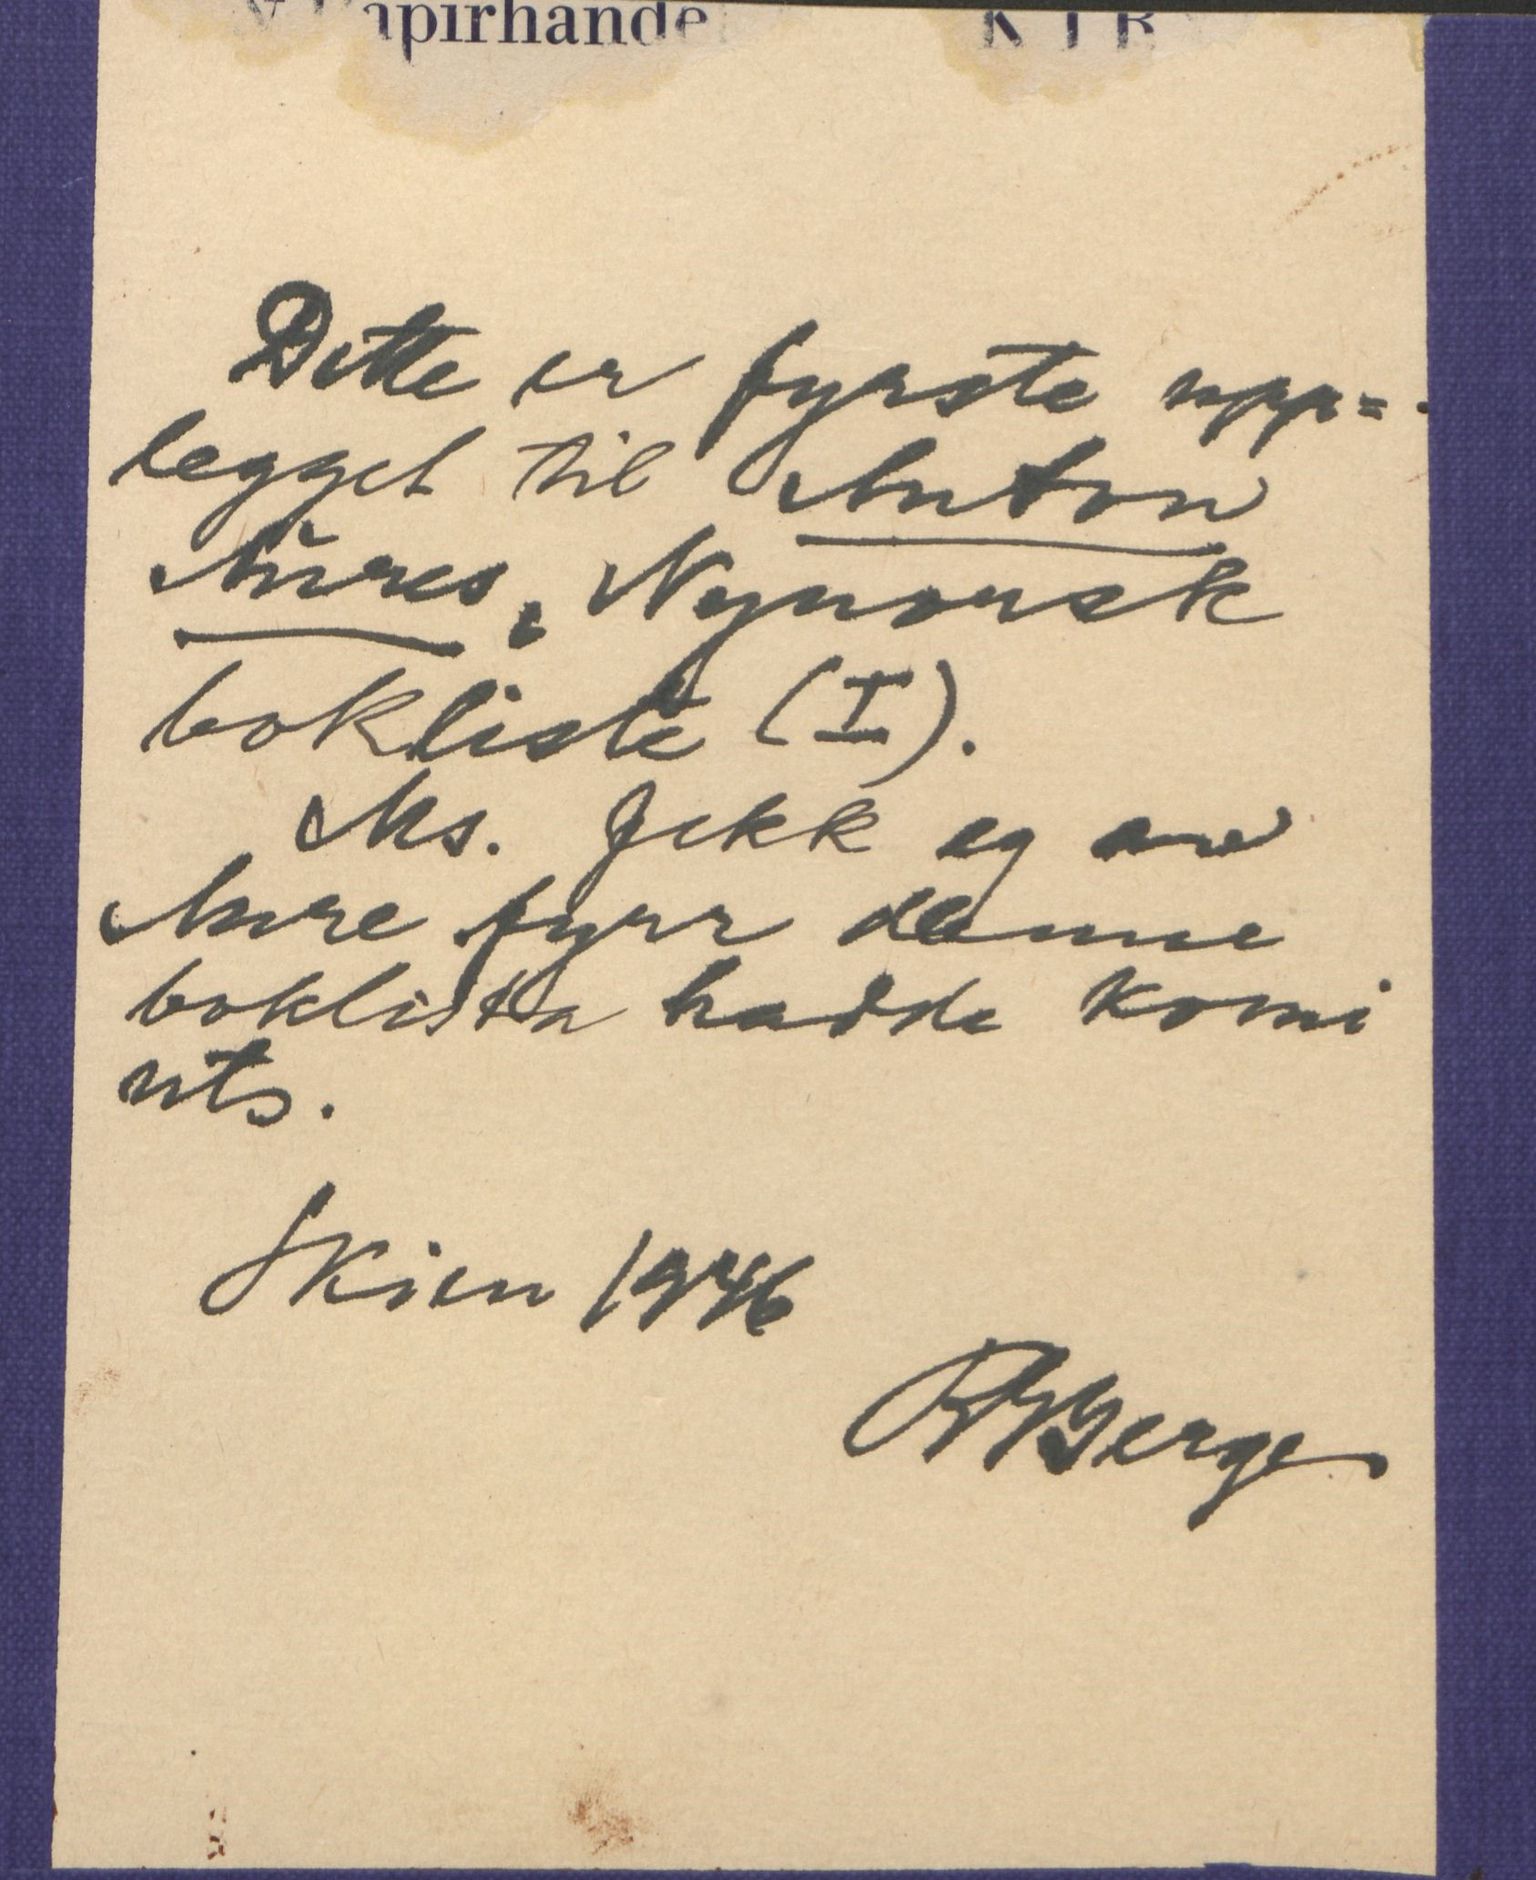 apirhande
Dette er fyrste upp=
legget til Anton
Aures, Nynorsk
bokliste (I).
Ms. fekk eg av
Aure fyrr denne
boklista hadde komi
uts.
Skien 1946
RBerge